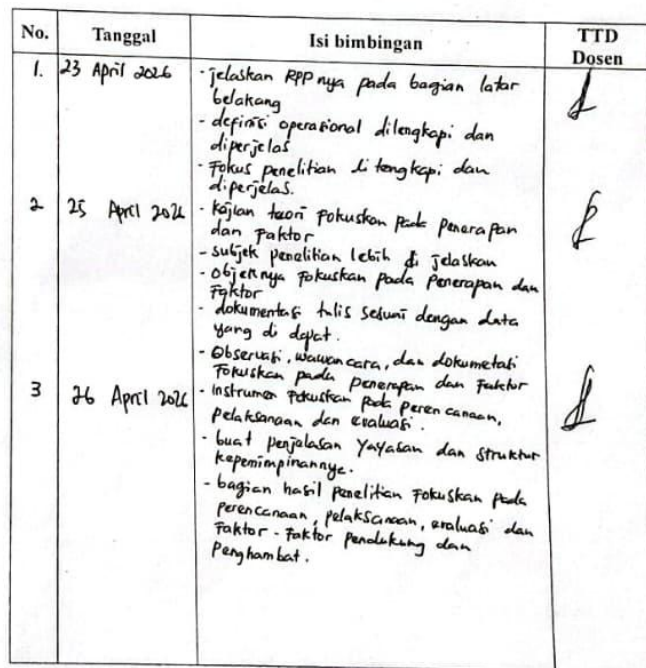 No. Tanggal Isi bimbingan TTD Dosen
1. 23 April 2026 - jelaskan RPP nya pada bagian latar
belakang
- definisi operasional dilengkapi dan
diperjelas
- Fokus penelitian di lengkapi dan
diperjelas.
2 25 April 2026 - kajian teori Fokuskan pada penerapan
dan Faktor
- subjek penelitian lebih di jelaskan
- objeknya Fokuskan pada Penerapan dan
Faktor
- dokumentasi tulis sesuai dengan data
yang di dapat.
- Observasi, wawancara, dan dokumetasi
Fokuskan pada penerapan dan Faktor
3 26 April 2026 - Instrumen Fokuskan pada perencanaan,
pelaksanaan dan evaluasi.
- buat penjalasan Yayasan dan struktur
kepemimpinannya.
- bagian hasil penelitian Fokuskan pada
perencanaan, pelaksanaan, evaluasi dan
Faktor - Faktor pendukung dan
Penghambat.